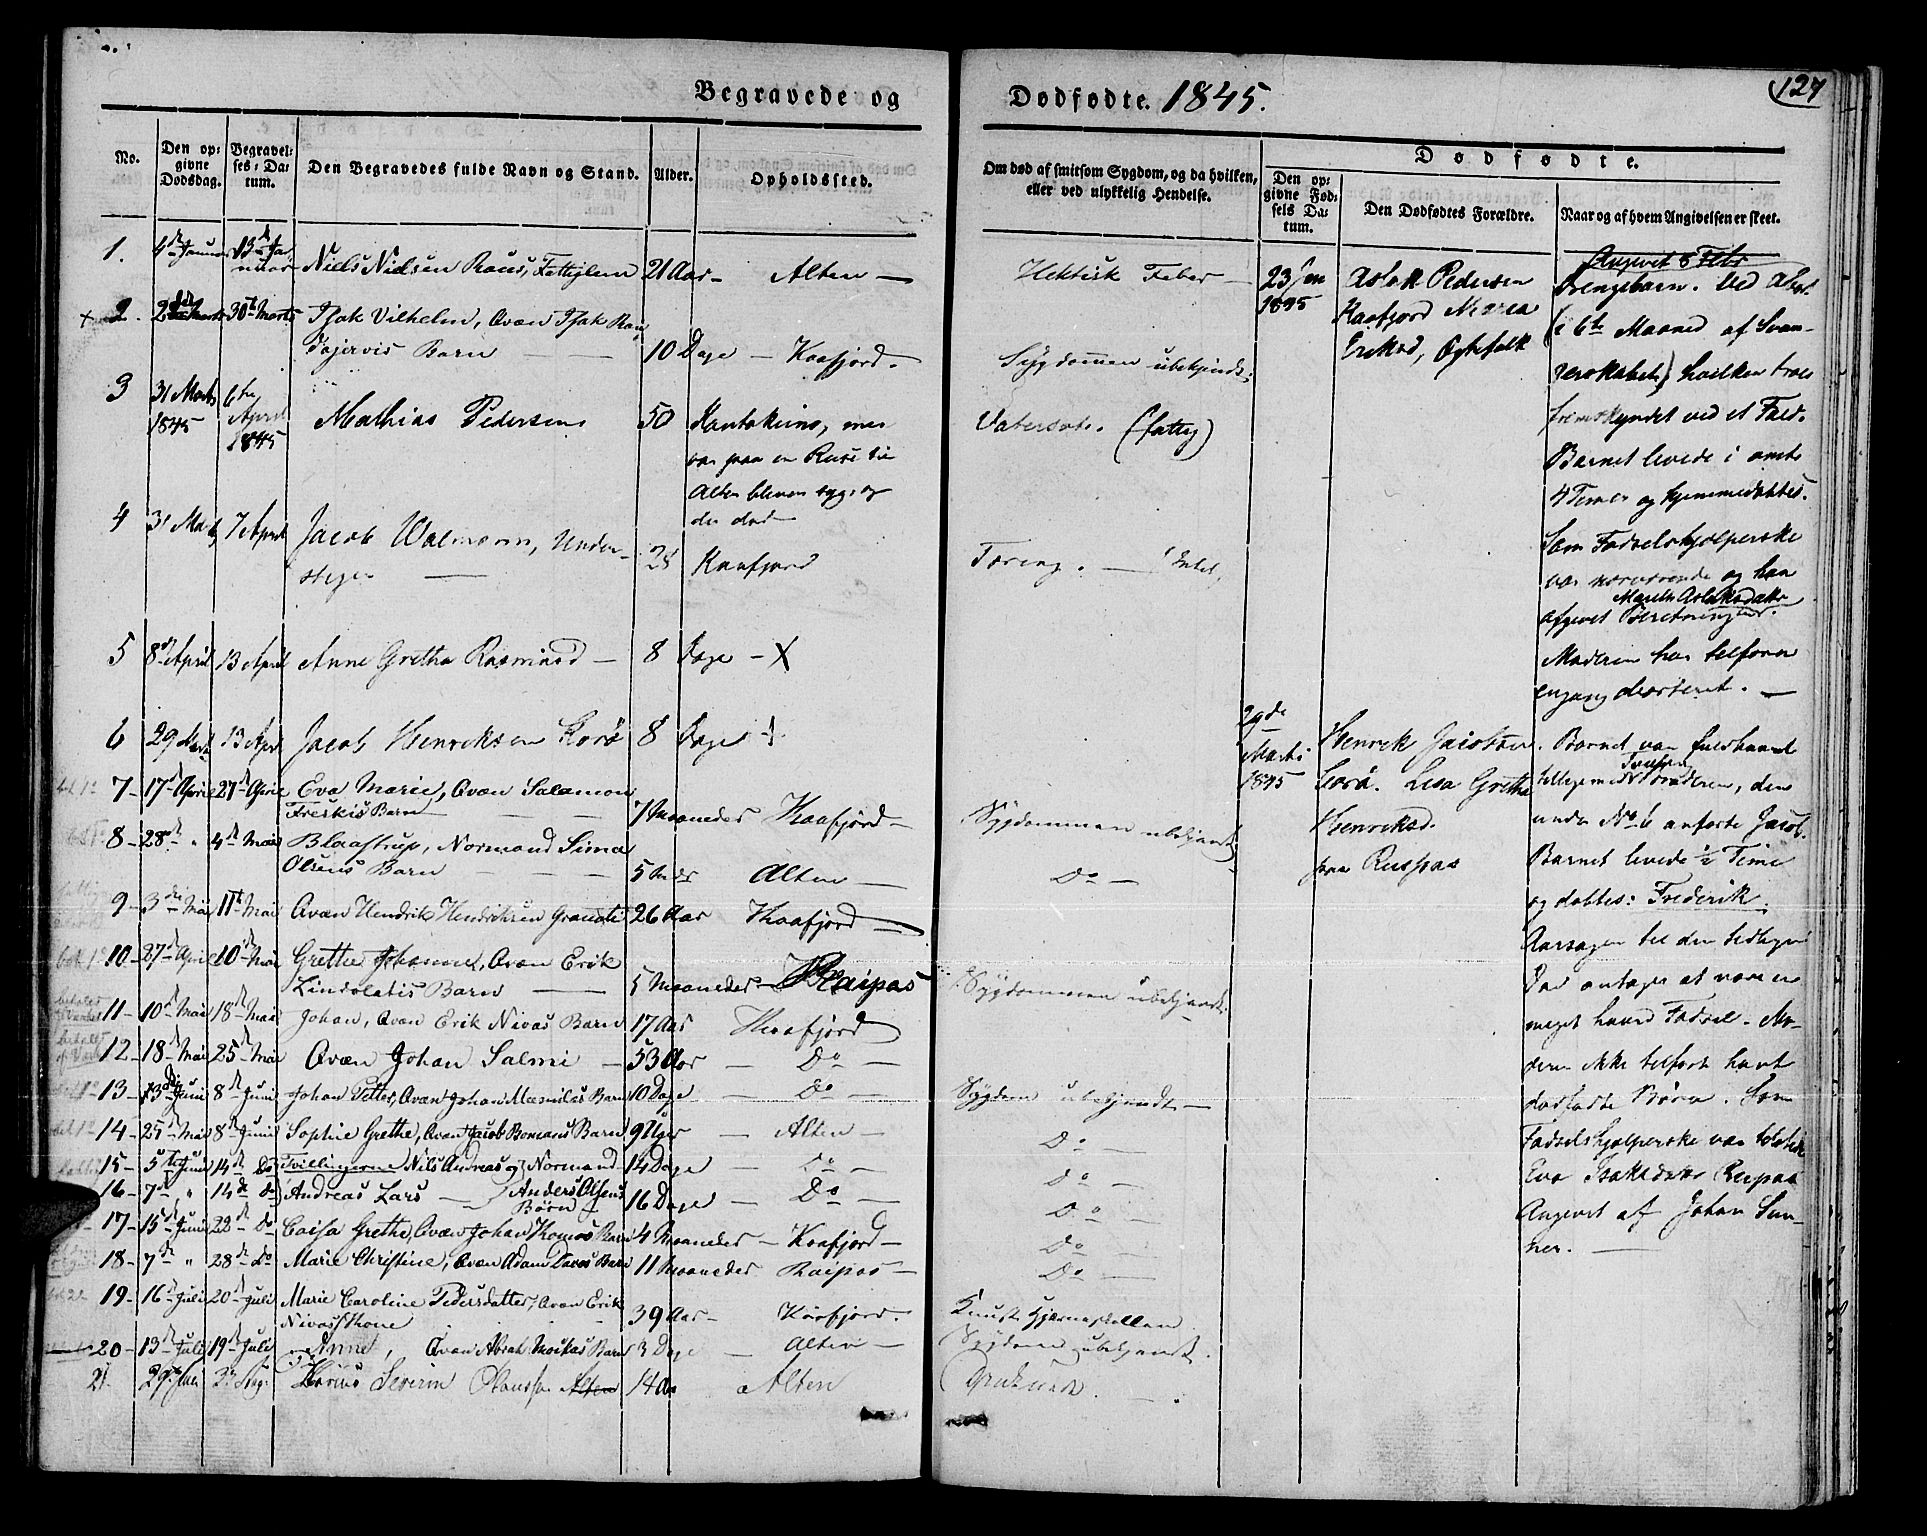 127
Begravede og Dødfødte. 1845.
No.
Den opgivne Dødsdag.
Begravelses-Datum.
Den Begravedes fulde Navn og Stand.
Alder.
Opholdssted.
Om død af smitsom Sygdom, og da hvilken, eller ved ulykkelig Hendelse.
Dødfødte.
Den opgivne Fødsels Datum.
Den Dødfødtes Forældre.
Naar og af hvem Angivelsen er skeet.
1. 4de Januar 13de Januar Niels Nielsen Raus, Fattiglem 21 Aar Alten Hektisk Feber
2. 30te Marts Isak Vilhelm, Qvæn Isak
Barn 10 Dage Kaafjord. Sygdommen ubekjendt.
3 31 Marts 1845 6te April 1845 Mathias Pedersen 50 Kautokeino, men
var paa en Reise til
Alten bleven syg, og
der død
Vatersot. (fattig)
4 31 Marts 7 April Jacob Walmann, Under-
stiger 28 Kaafjord Tæring.
5 8de April 13 April Anne Gretha Rasmusd 8 Dage
6 29 Marts 13 April Jacob Henriksen Sorø 8 Dage
7 17de April 27de April Eva Marie, Qvæn Salamon
Freskis Barn 7 Maaneder Kaafjord Sygdommen ubekjendt
8 28de " 4de Mai Blaastrup, Normand Sima
Olsens Barn 5 Alten Do
9 3die Mai 11te Mai Qvæn Hendrik Hendriksen 26 Aar Kaafjord
10 27de April 10de Mai Grethe Johanne, Qvæn Erik
Lindolatis Barn 5 Maaneder Raipas Sygdommen ubekjendt
11 10de Mai 18de Mai Johan, Qvæn Erik Nivas Barn 17 Aar Kaafjord
12 18de Mai 25de Mai Qvæn Johan Salmi 53 Aar Do
13 3die Juni 8de Juni Johan Petter, Qvæn Johan Barn 10 Dage Do Sygdom ubekjendt
14 25de Mai 8de Juni Sophie Grethe, Qvæn Jacob Bomans Barn 9 Uger Alten Do
15 5te Juni 14de Do Tvillingerne Nils Andreas og Normand 14 Dage Do Do
16 7de " 14de Do Andreas Lars Anders Olsens
Børn 16 Dage Do Do
17 15de Juni 22de Do Caisa Grethe, Qvæn Johan Thomas Barn 4 Maaneder Kaafjord Do
18 7de " 28de Do Marie Christine, Qvæn Adam Barn 11 Maaneder Raipas Do
19 16de Juli 20de Juli Marie Caroline Pedersdatter, Qvæn Erik
Nivas Kone 39 Aar Kaafjord. Knust Hjerneskallen
20 13de Juli 19de Juli Anne, Qvæn Abrah Barn 3 Dage Alten Sygdom ubekjendt.
21. 29de Juli Severin Alten 14 Aar Alten
23 Jan 1845
Aslak Pedersen
Kaafjord
Eriksd, Ægtefolk
Angivet 8 Febr
Drengebarn. Ved Abort
(i 6te Maaned af Svan-
gerskabet) hvilken blev
fremskyndet ved et Fald.
Barnet levede i omtr
4 Timer og hjemmedøbtes.
Som Fødselshjelperske
var nærværende og har
afgivet Beretningen
Marith Aslaksdatter.
Moderen har tilforn
engang aborteret.
29de Marts 1845
Henrik Jacobsen
Sorø. Lisa Gretha
Henriksd.
paa Raipas
Barnet var fuldbaaret
Tvilling
tilligemed Broderen, den
under No 6 anførte Jacob.
Barnet levede ½ Time
og døbtes: Frederik.
Aarsagen til den tidlige
Død antages at være en
meget haard Fødsel. Mo-
deren ikke tilforn havt
dødfødte Børn. Som
Fødselshjelperske var tilstede
Eva Isaksdatter Raipas
Angivet af Johan Sun-